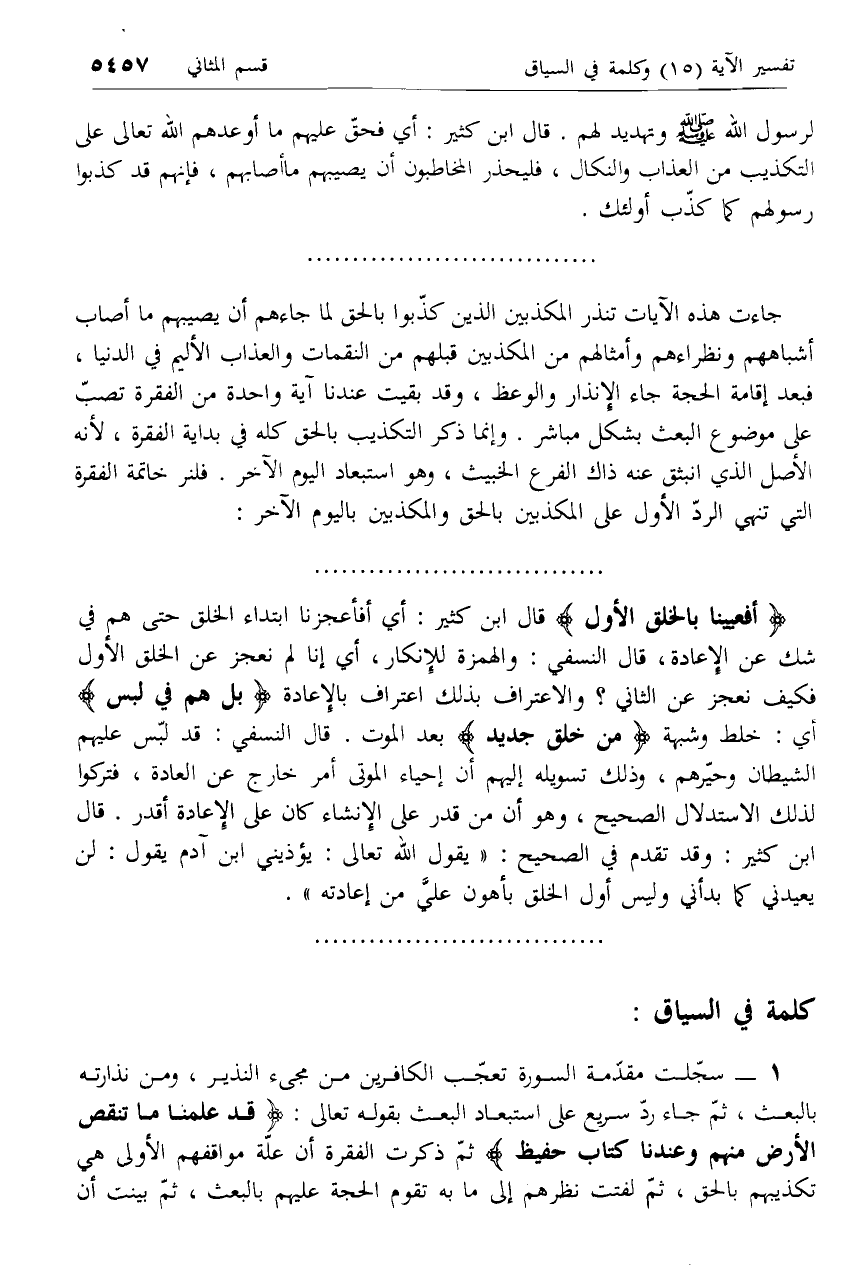 تفسير الآية (١٥) وكلمة في السياق قسم المثاني ٥٤٥٧
لرسول الله ﷺ وتهديد لهم . قال ابن كثير : أي فحقّ عليهم ما أوعدهم الله تعالى على
التكذيب من العذاب والنكال ، فليحذر المخاطبون أن يصيبهم ماأصابهم ، فإنهم قد كذبوا
رسولهم كما كذّب أولئك .
................................
جاءت هذه الآيات تنذر المكذبين الذين كذّبوا بالحق لما جاءهم أن يصيبهم ما أصاب
أشباههم ونظراءهم وأمثالهم من المكذبين قبلهم من النقمات والعذاب الأليم في الدنيا ،
فبعد إقامة الحجة جاء الإنذار والوعظ ، وقد بقيت عندنا آية واحدة من الفقرة تصبّ
على موضوع البعث بشكل مباشر . وإنما ذكر التكذيب بالحق كله في بداية الفقرة ، لأنه
الأصل الذي انبثق عنه ذاك الفرع الخبيث ، وهو استبعاد اليوم الآخر . فلنر خاتمة الفقرة
التي تنهي الردّ الأول على المكذبين بالحق والمكذبين باليوم الآخر :
................................
﴿ أفعيينا بالخلق الأول ﴾ قال ابن كثير : أي أفأعجزنا ابتداء الخلق حتى هم في
شك عن الإعادة، قال النسفي : والهمزة للإنكار، أي إنا لم نعجز عن الخلق الأول
فكيف نعجز عن الثاني ؟ والاعتراف بذلك اعتراف بالإعادة ﴿ بل هم في لبس ﴾
أي : خلط وشبهة ﴿ من خلق جديد ﴾ بعد الموت . قال النسفي : قد لبّس عليهم
الشيطان وحيّرهم ، وذلك تسويله إليهم أن إحياء الموتى أمر خارج عن العادة ، فتركوا
لذلك الاستدلال الصحيح ، وهو أن من قدر على الإنشاء كان على الإعادة أقدر . قال
ابن كثير : وقد تقدم في الصحيح : « يقول الله تعالى : يؤذيني ابن آدم يقول : لن
يعيدني كما بدأني وليس أول الخلق بأهون عليَّ من إعادته » .
................................
كلمة في السياق :
١ ــ سجّلت مقدّمة السورة تعجّب الكافرين من مجيء النذير ، ومن نذارته
بالبعث ، ثمّ جاء ردّ سريع على استبعاد البعث بقوله تعالى : ﴿ قد علمنا ما تنقص
الأرض منهم وعندنا كتاب حفيظ ﴾ ثمّ ذكرت الفقرة أن علّة مواقفهم الأولى هي
تكذيبهم بالحق ، ثمّ لفتت نظرهم إلى ما به تقوم الحجة عليهم بالبعث ، ثمّ بينت أن